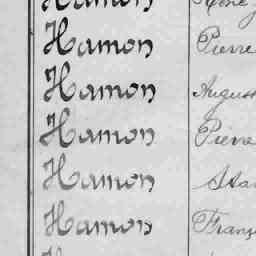 Hamon René
Hamon Pierre
Hamon August
Hamon Pierre
Hamon Sta
Hamon Franç